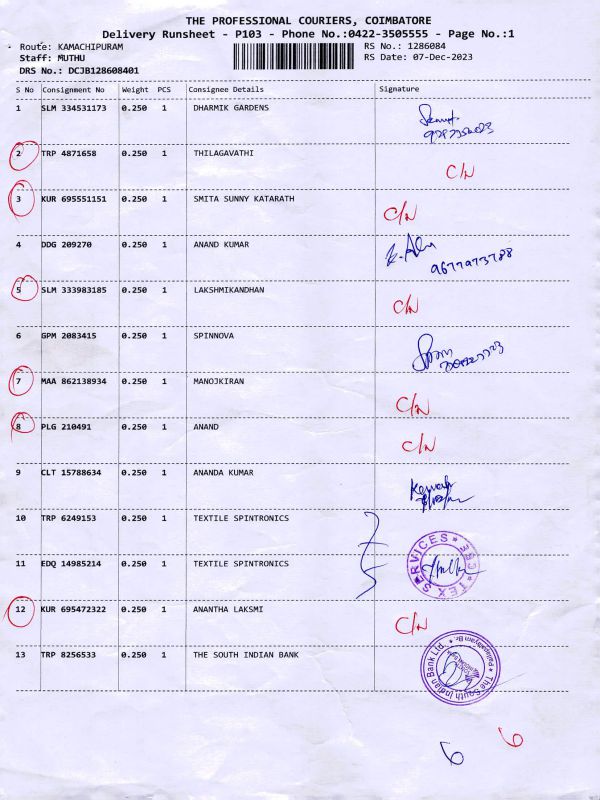 THE PROFESSIONAL COURIERS, COIMBATORE
Delivery Runsheet - P103 - Phone No.:0422-3505555 - Page No.:1
Route: KAMACHIPURAM RS No.: 1286084
Staff: MUTHU RS Date: 07-Dec-2023
DRS No.: DCJB128608401
S No Consignment No Weight PCS Consignee Details Signature
1 SLM 334531173 0.250 1 DHARMIK GARDENS
2 TRP 4871658 0.250 1 THILAGAVATHI C/N
3 KUR 695551151 0.250 1 SMITA SUNNY KATARATH C/N
4 DDG 209270 0.250 1 ANAND KUMAR
9677973788
5 SLM 333983185 0.250 1 LAKSHMIKANDHAN C/N
6 GPM 2083415 0.250 1 SPINNOVA
7 MAA 862138934 0.250 1 MANOJKIRAN C/N
8 PLG 210491 0.250 1 ANAND C/N
9 CLT 15788634 0.250 1 ANANDA KUMAR
10 TRP 6249153 0.250 1 TEXTILE SPINTRONICS
11 EDQ 14985214 0.250 1 TEXTILE SPINTRONICS
TEX SERVICES
12 KUR 695472322 0.250 1 ANANTHA LAKSMI C/N
13 TRP 8256533 0.250 1 THE SOUTH INDIAN BANK
The South Indian Bank Ltd.
6 6